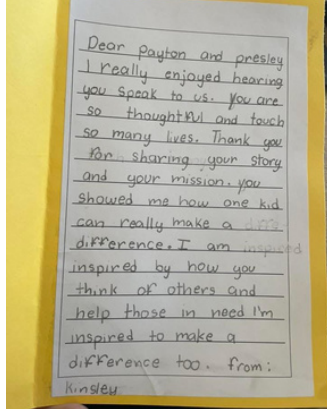 Dear Payton and presley
I really enjoyed hearing
you speak to us. You are
so thoughtful and touch
so many lives. Thank you
for sharing your story
and your mission. you
showed me how one kid
can really make a diffe
difference. I am inspired
inspired by how you
think of others and
help those in need I'm
inspired to make a
difference too. from:
Kinsley